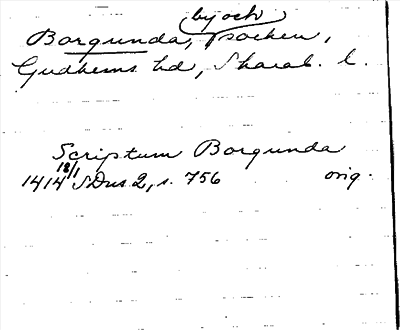 by och
Borgunda, socken,
Gudhems hd, Skarab. l.
Scriptum Borgunda
1414 18/1 SDns 2, s. 756 orig.